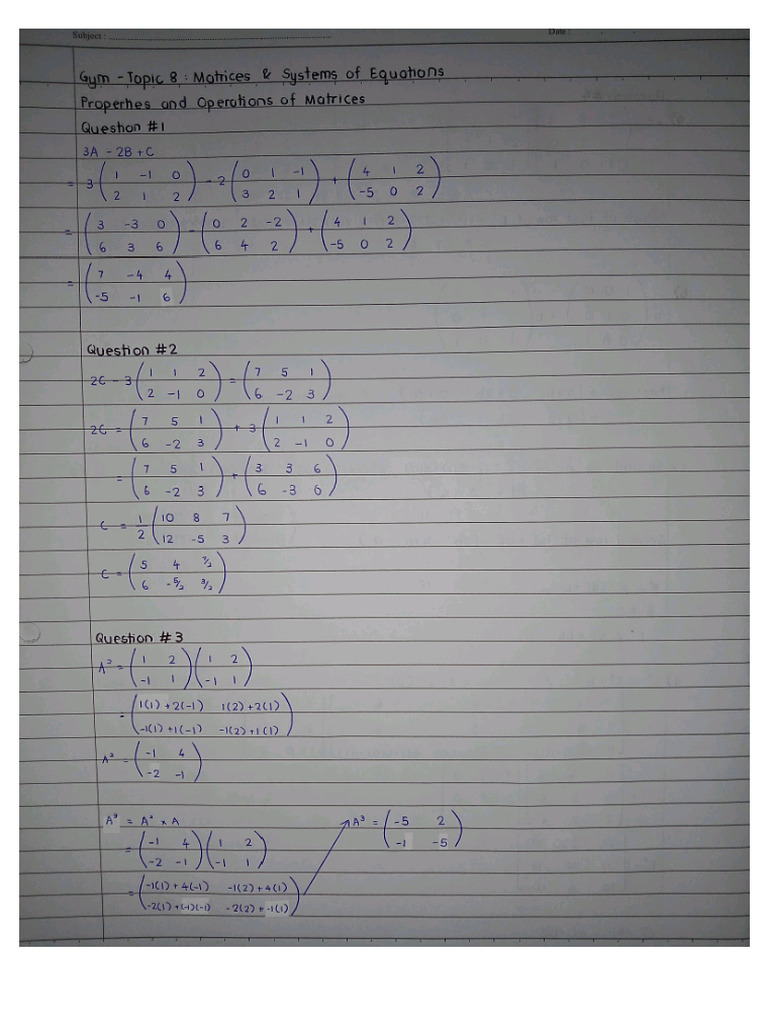 Subject : ........ Date :
Gym - Topic 8 : Matrices & Systems of Equations
Properties and Operations of Matrices
Question #1
3A - 2B + C
= 3 (1 -1 0 / 2 1 2) - 2 (0 1 -1 / 3 2 1) + (4 1 2 / -5 0 2)
= (3 -3 0 / 6 3 6) - (0 2 -2 / 6 4 2) + (4 1 2 / -5 0 2)
= (7 -4 4 / -5 -1 6)
Question #2
2C - 3 (1 1 2 / 2 -1 0) = (7 5 1 / 6 -2 3)
2C = (7 5 1 / 6 -2 3) + 3 (1 1 2 / 2 -1 0)
= (7 5 1 / 6 -2 3) + (3 3 6 / 6 -3 0)
C = 1/2 (10 8 7 / 12 -5 3)
C = (5 4 7/2 / 6 -5/2 3/2)
Question #3
A² = (1 2 / -1 1) (1 2 / -1 1)
= (1(1)+2(-1) 1(2)+2(1) / -1(1)+1(-1) -1(2)+1(1))
A² = (-1 4 / -2 -1)
A³ = A² × A
= (-1 4 / -2 -1) (1 2 / -1 1)
= (-1(1)+4(-1) -1(2)+4(1) / -2(1)+(-1)(-1) -2(2)+-1(1))
A³ = (-5 2 / -1 -5)